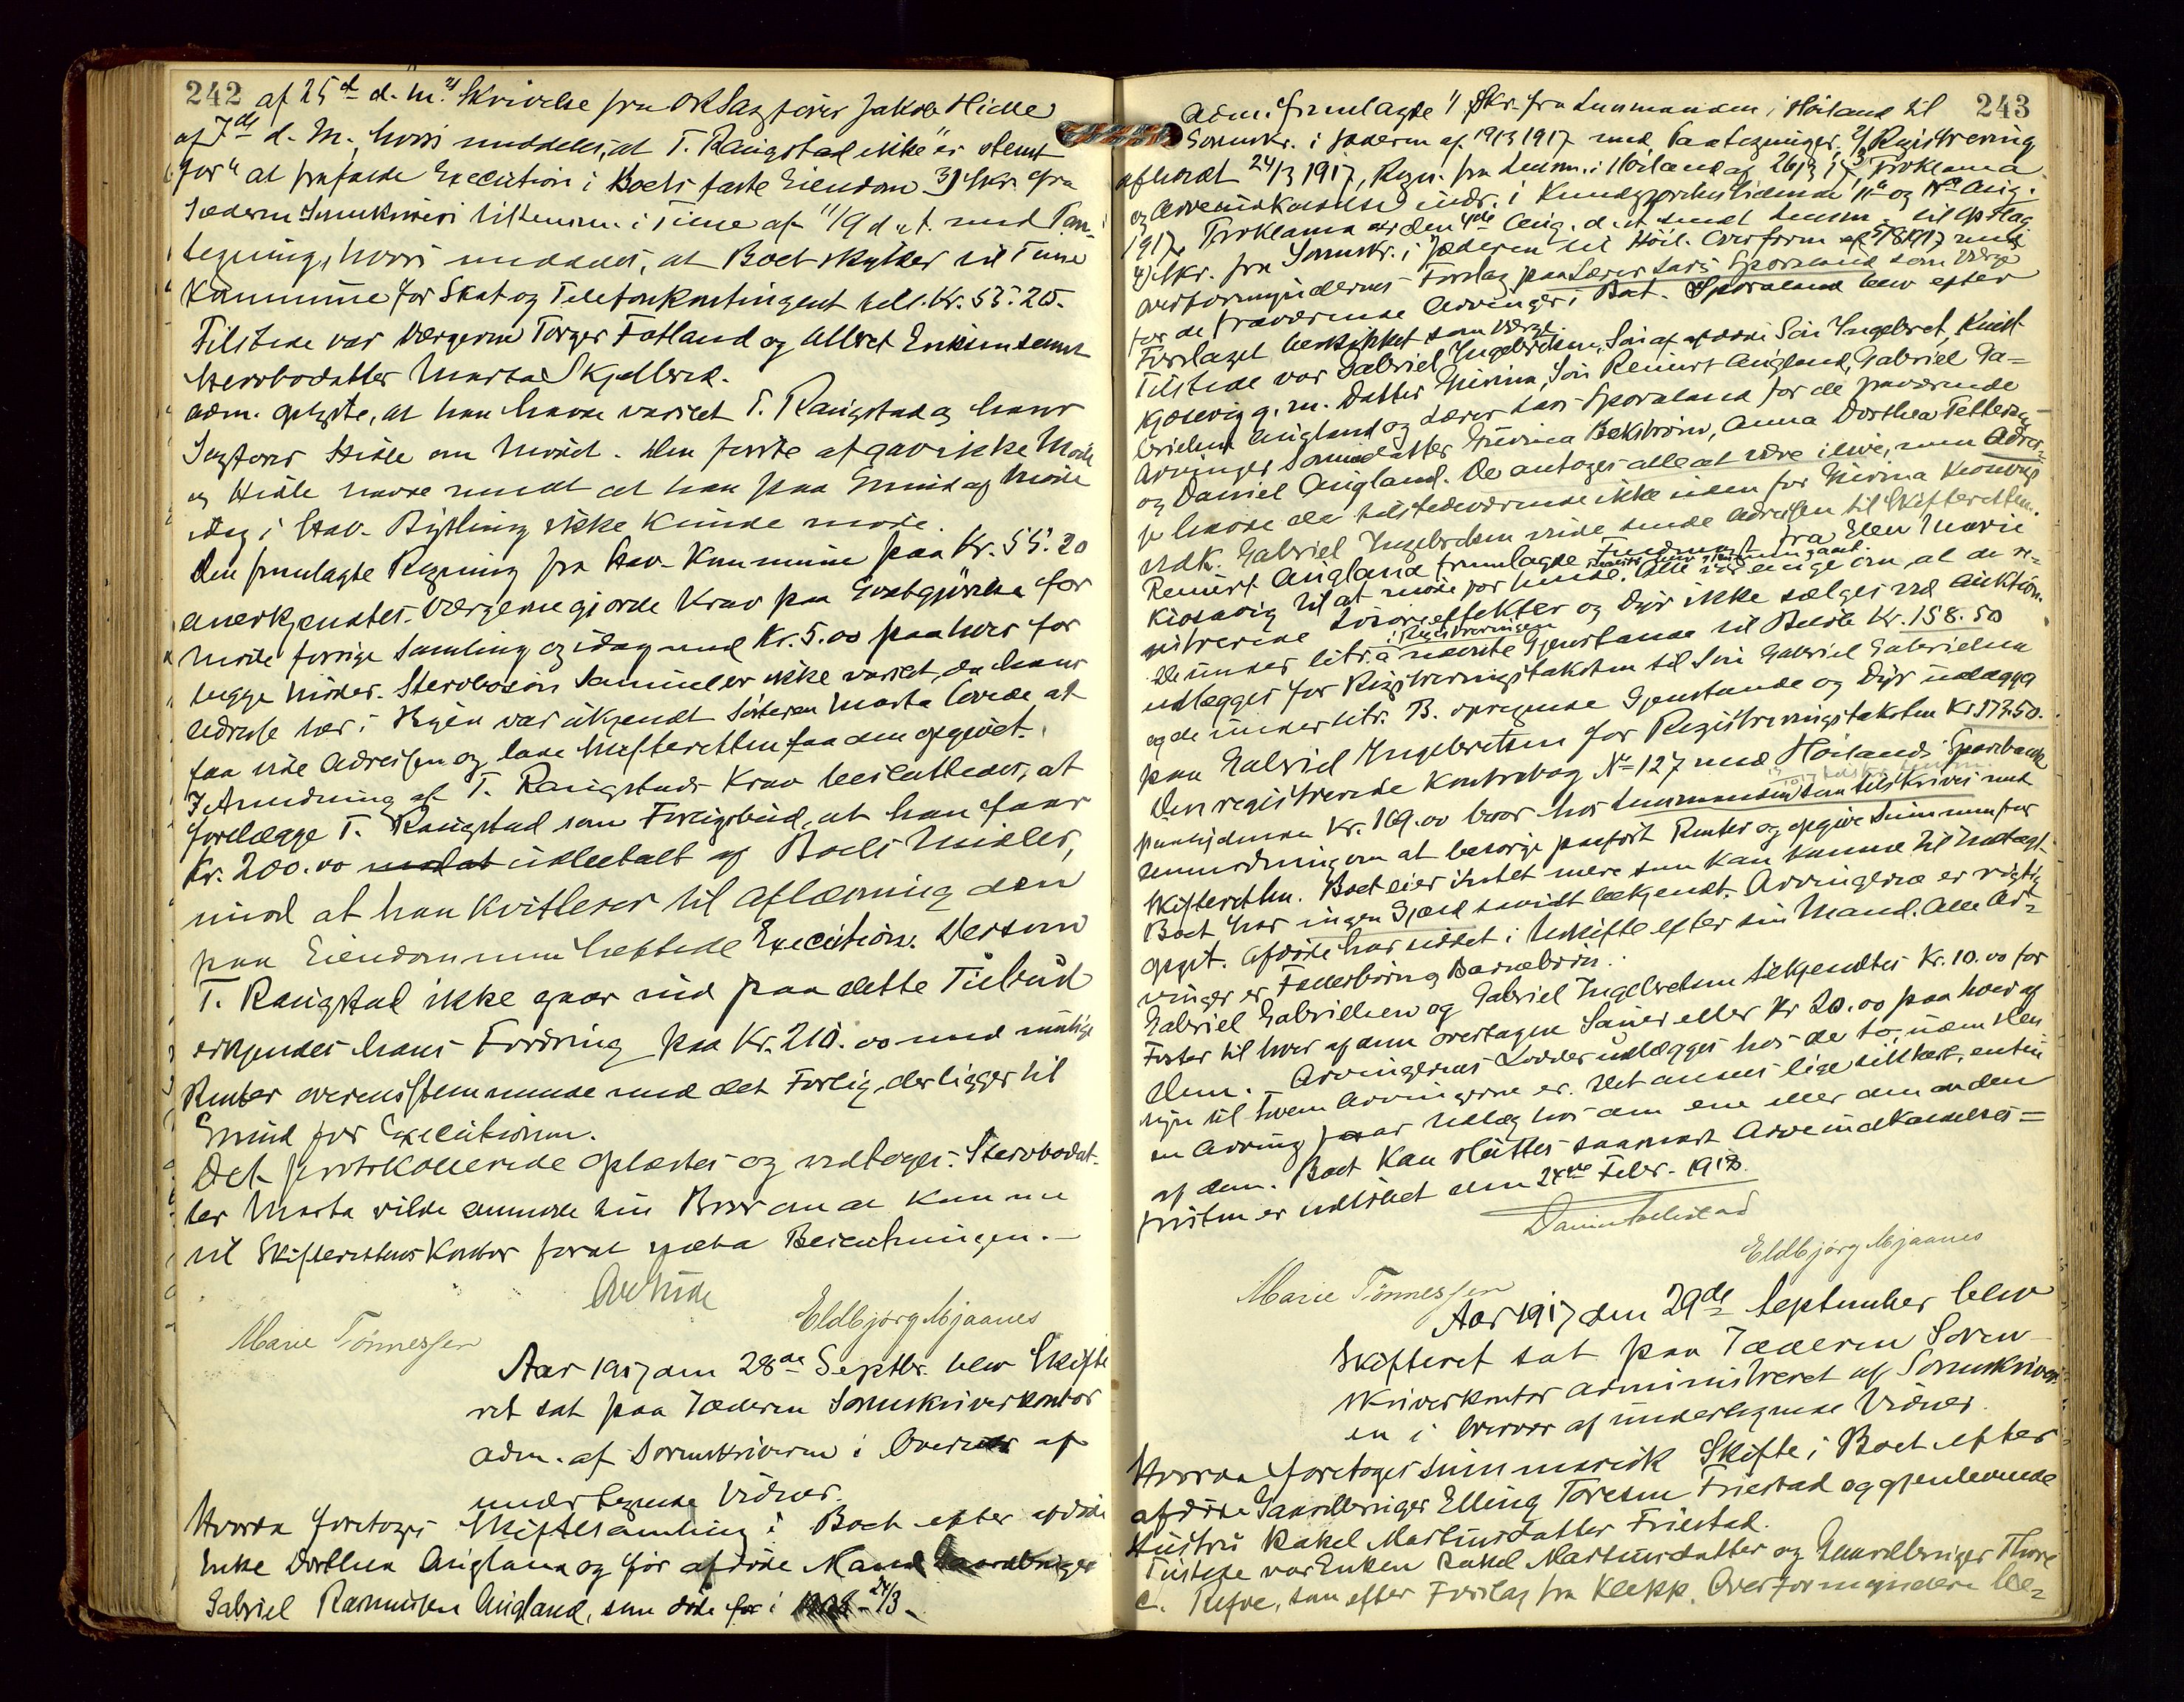 242
af 25de d. M. 2) Skrivelse fra O.R.Sagfører Jakob Hidle
af 7de d. M., hvori meddeles, at T. Rangstad ikke "er stemt
for" at frafalde Execution i Boets faste Eiendom 3) Skr. fra
Jæderen Sorenskriveri til Lensm. i Time af 11/9 d. A. med Paa-
tegning, hvori meddeles, at Boet skylder til Time
Kommune for Skat og Telefonkontingent tils. Kr. 55.20.
Tilstede var Værgerne Torger Fotland og Albret Erikssen samt
Stervbodatter Marta Skjelbred.
Adm. oplyste, at han havde varslet T. Rangstad og hans
Sagfører Hidle om Mødet. Den første afgav ikke Møde
og Hidle havde meldt at han paa Grund af Møde
idag i Stav. Byting ikke kunde møde.
Den fremlagte Regning fra Stav. Kommune paa Kr. 55.20
anerkjendtes. Værgerne gjorde Krav paa Godtgjørelse for
Møde forrige Samling og idag med Kr. 5.00 paa hver for
begge Møder. Stervbosøn Samuel er ikke varslet, da hans
Adresse her i Byen var ukjendt. Søsteren Marta lovede at
faa vide Adressen og lade Skifteretten faa den opgivet.
I Anledning af T. Rangstads Krav besluttedes, at
forelægge T. Rangstad som Forligsbud, at han faar
Kr. 200.00 udbetalt af Boets Midler,
mod at han kvitterer til Aflæsning den
paa Eiendommen heftede Execution. Dersom
T. Rangstad ikke gaar ind paa dette Tilbud
erkjendes hans Fordring paa Kr. 210.00 med mulige
Renter overensstemmende med det Forlig, der ligger til
Grund for Executionen.
Det protokollerede oplæstes og vedtoges. Stervbodat-
ter Marta vilde anmode sin Bror om at komme
til Skifterettens Kontor for at vedta Beslutningen.
Marie Tønnessen Eldbjørg Mjaanes
Aar 1917 den 28de Septbr. blev Skifte
ret sat paa Jæderen Sorenskriverkontor
adm. af Sorenskriveren i Overvær af
undertegnede Vidner.
Hvorda foretoges Skiftesamling i Boet efter afdøde
Enke Dorthea Aigland og før afdøde Mand Gaardbruger
Gabriel Rasmussen Aigland, som døde før i 24/3
243
Adm. fremlagde 1) Skr. fra Lensmanden i Høiland til
Sorenskr. i Jæderen af 19/3 1917 med Paategninger. 2) Registrering
afholdt 24/3 1917, Regn. fra Lensm. i Høiland af 26/3 17, 3) Proklama
og Arveindkaldelse indr. i Kundgjørelsestidende og Aug.
1917. Proklama er den 4de Aug. d. A. sendt Lensm. til Opslag
4) Skr. fra Sorenskr. i Jæderen til Höil. Overform. af 5/8 1917 med
Overformynderens Forslag paa Lærer Lars Sporaland som Værge
for de fraværende Arvinger i Boet. Sporaland blev efter
Forslaget beskikket som Værge.
Tilstede var Gabriel Ingebretsen, Søn af afdøde Søn Ingebret, Knud
Kjosevig g. m. Datter Gurina, Søn Reinert Aigland, Gabriel Ga-
brielsen Aigland og Lærer Lars Sporaland for de fraværende
Arvinger Sønnedatter Gurina Bekstrøm, Anna Dorthea Pettersen
og Daniel Aigland. De antages alle at være ilive, men Adres-
se havde de tilstedeværende ikke uden for Gurina
vedk. Gabriel Ingebretsen vilde sende Adressen til Skifteretten.
Reinert Aigland fremlagde Fuldmagt fra Elen Marie
Kiosavig til at møde for hende. Alle var enige om at de re-
gistrerede Løsøreeffekter og Dyr ikke sælges ved Auktion.
De under litr. a i Registreringen nævnte Gjenstande til Beløb Kr. 158.50
udlægges for Registreringstaksten til Søn Gabriel Gabrielsen
og de under litr. B. opregnede Gjenstande og Dyr udlægges
paa Gabriel Ingebretsen for Registreringstaksten Kr. 373.50.
Den registrerede Kontrabog No 127 med Høilands Sparebank
paalydende Kr. 169.00 beror hos Lensmanden som tilskrives med
Anmodning om at besørge paaført Renter og opgive Summen for
Skifteretten. Boet eier intet mere som kan komme til Indtægt.
Boet har ingen Gjæld saavidt bekjendt. Arvingerne er rigtig
opgit. Afdøde har siddet i Uskifte efter sin Mand. Alle Ar-
vinger er Fællesbørn og Barnebørn.
Gabriel Gabrielsen og Gabriel Ingebretsen tilkjendtes Kr. 10.00 for
Foster til hver af dem overtagen Sauer eller Kr 20.00 paa hver af
dem. Arvingernes Lodder udlægges hos de to, uden Hen-
syn til hvem Arvingerne er. Det ansees lige sikkert, enten
en Arving faar Udlæg hos den ene eller den anden
af dem. Boet kan sluttes saasnart Arveindkaldelses-
fristen er udløbet den 24de Febr. 1918.
Eldbjørg Mjaanes
Marie Tønnessen
Aar 1917 den 29de September blev
Skifteret sat paa Jæderen Soren-
skriverkontor administreret af Sorenskriver-
en i Overvær af undertegnede Vidner.
Hvorda foretoges summarisk Skifte i Boet efter
afdøde Gaardbruger Elling Toresen Friestad og gjenlevende
Hustru Rakel Martinsdatter Friestad.
Tilstede var Enken Rakel Martinsdatter og Gaardbruger Thore
E. Refve, som efter Forslag fra Klepp Overformynderi be-